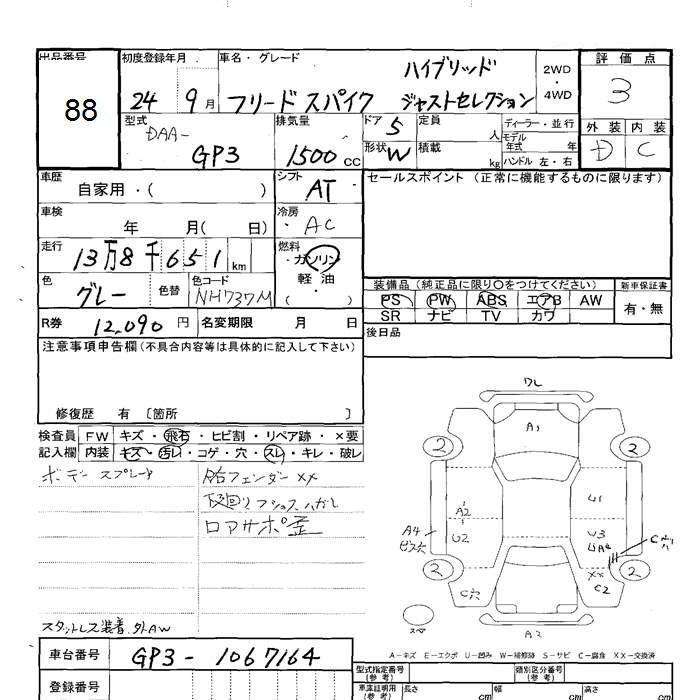 出品番号
88
初度登録年月
24 9月
車名・グレード
ハイブリッド
フリード スパイク ジャストセレクション
2WD
・
4WD
評価点
3
型式
DAA-
GP3
排気量
1500 cc
ドア 5
定員 人
形状 W
積載 kg
ディーラー・並行
モデル年式 年
ハンドル 左・右
外装 内装
D C
車歴
自家用・( )
シフト
AT
セールスポイント (正常に機能するものに限ります)
車検
年 月( 日)
冷房
・AC
走行
13万8千651 km
燃料
・ガソリン
軽油
・( )
色
グレー
色替
色コード
NH737M
装備品 (純正品に限り○をつけてください)
新車保証書
PS PW ABS エアB AW
SR ナビ TV カワ
有・無
R券 12,090円
名変期限 月 日
後日品
注意事項申告欄(不具合内容等は具体的に記入して下さい)
修復歴 有 〔箇所 〕
検査員 FW キズ・飛石・ヒビ割・リペア跡・×要
記入欄 内装 キズ・汚レ・コゲ・穴・スレ・キレ・破レ
ボデースプレード
右フェンダー××
下廻りブッシュハガレ
ロアサポ歪
スタットレス装着.外AW
ワレ
A1
2 2
A2
U1
A4
ビス穴
U2
U3
UA2
××
C2
C穴
2 2
スペア
A3
A-キズ E-エクボ U-凹み W-補修跡 S-サビ C-腐食 XX-交換済
車台番号 GP3-1067164
登録番号
型式指定番号
(参考)
類別区分番号
(参考)
車庫証明用
(参考)
長さ cm
幅 cm
高さ cm